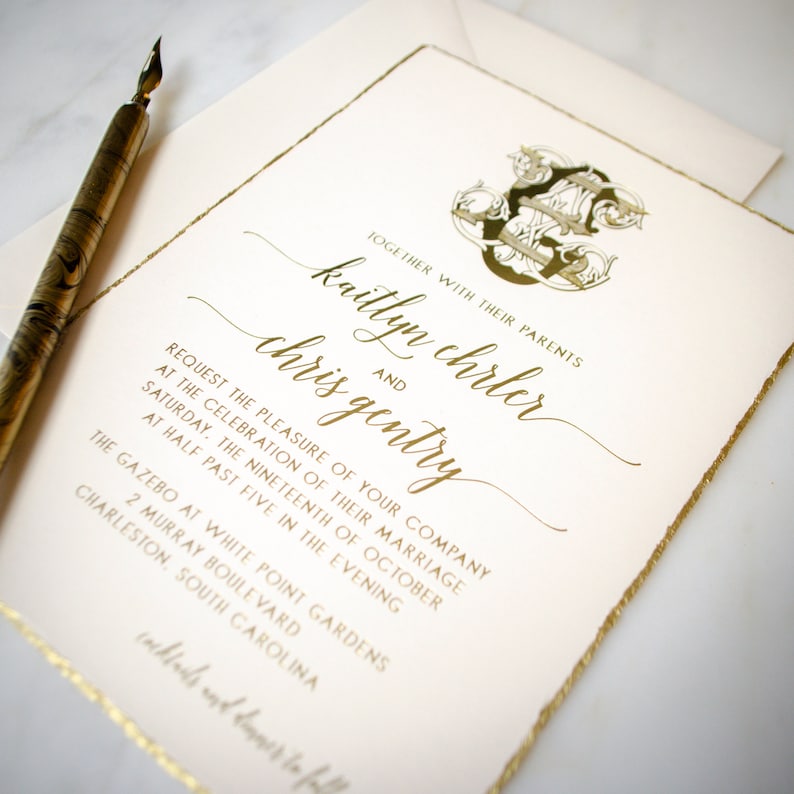 TOGETHER WITH THEIR PARENTS
kaitlyn ehrler
AND
chris gentry
REQUEST THE PLEASURE OF YOUR COMPANY
AT THE CELEBRATION OF THEIR MARRIAGE
SATURDAY, THE NINETEENTH OF OCTOBER
AT HALF PAST FIVE IN THE EVENING
THE GAZEBO AT WHITE POINT GARDENS
2 MURRAY BOULEVARD
CHARLESTON, SOUTH CAROLINA
cocktails and dinner to foll